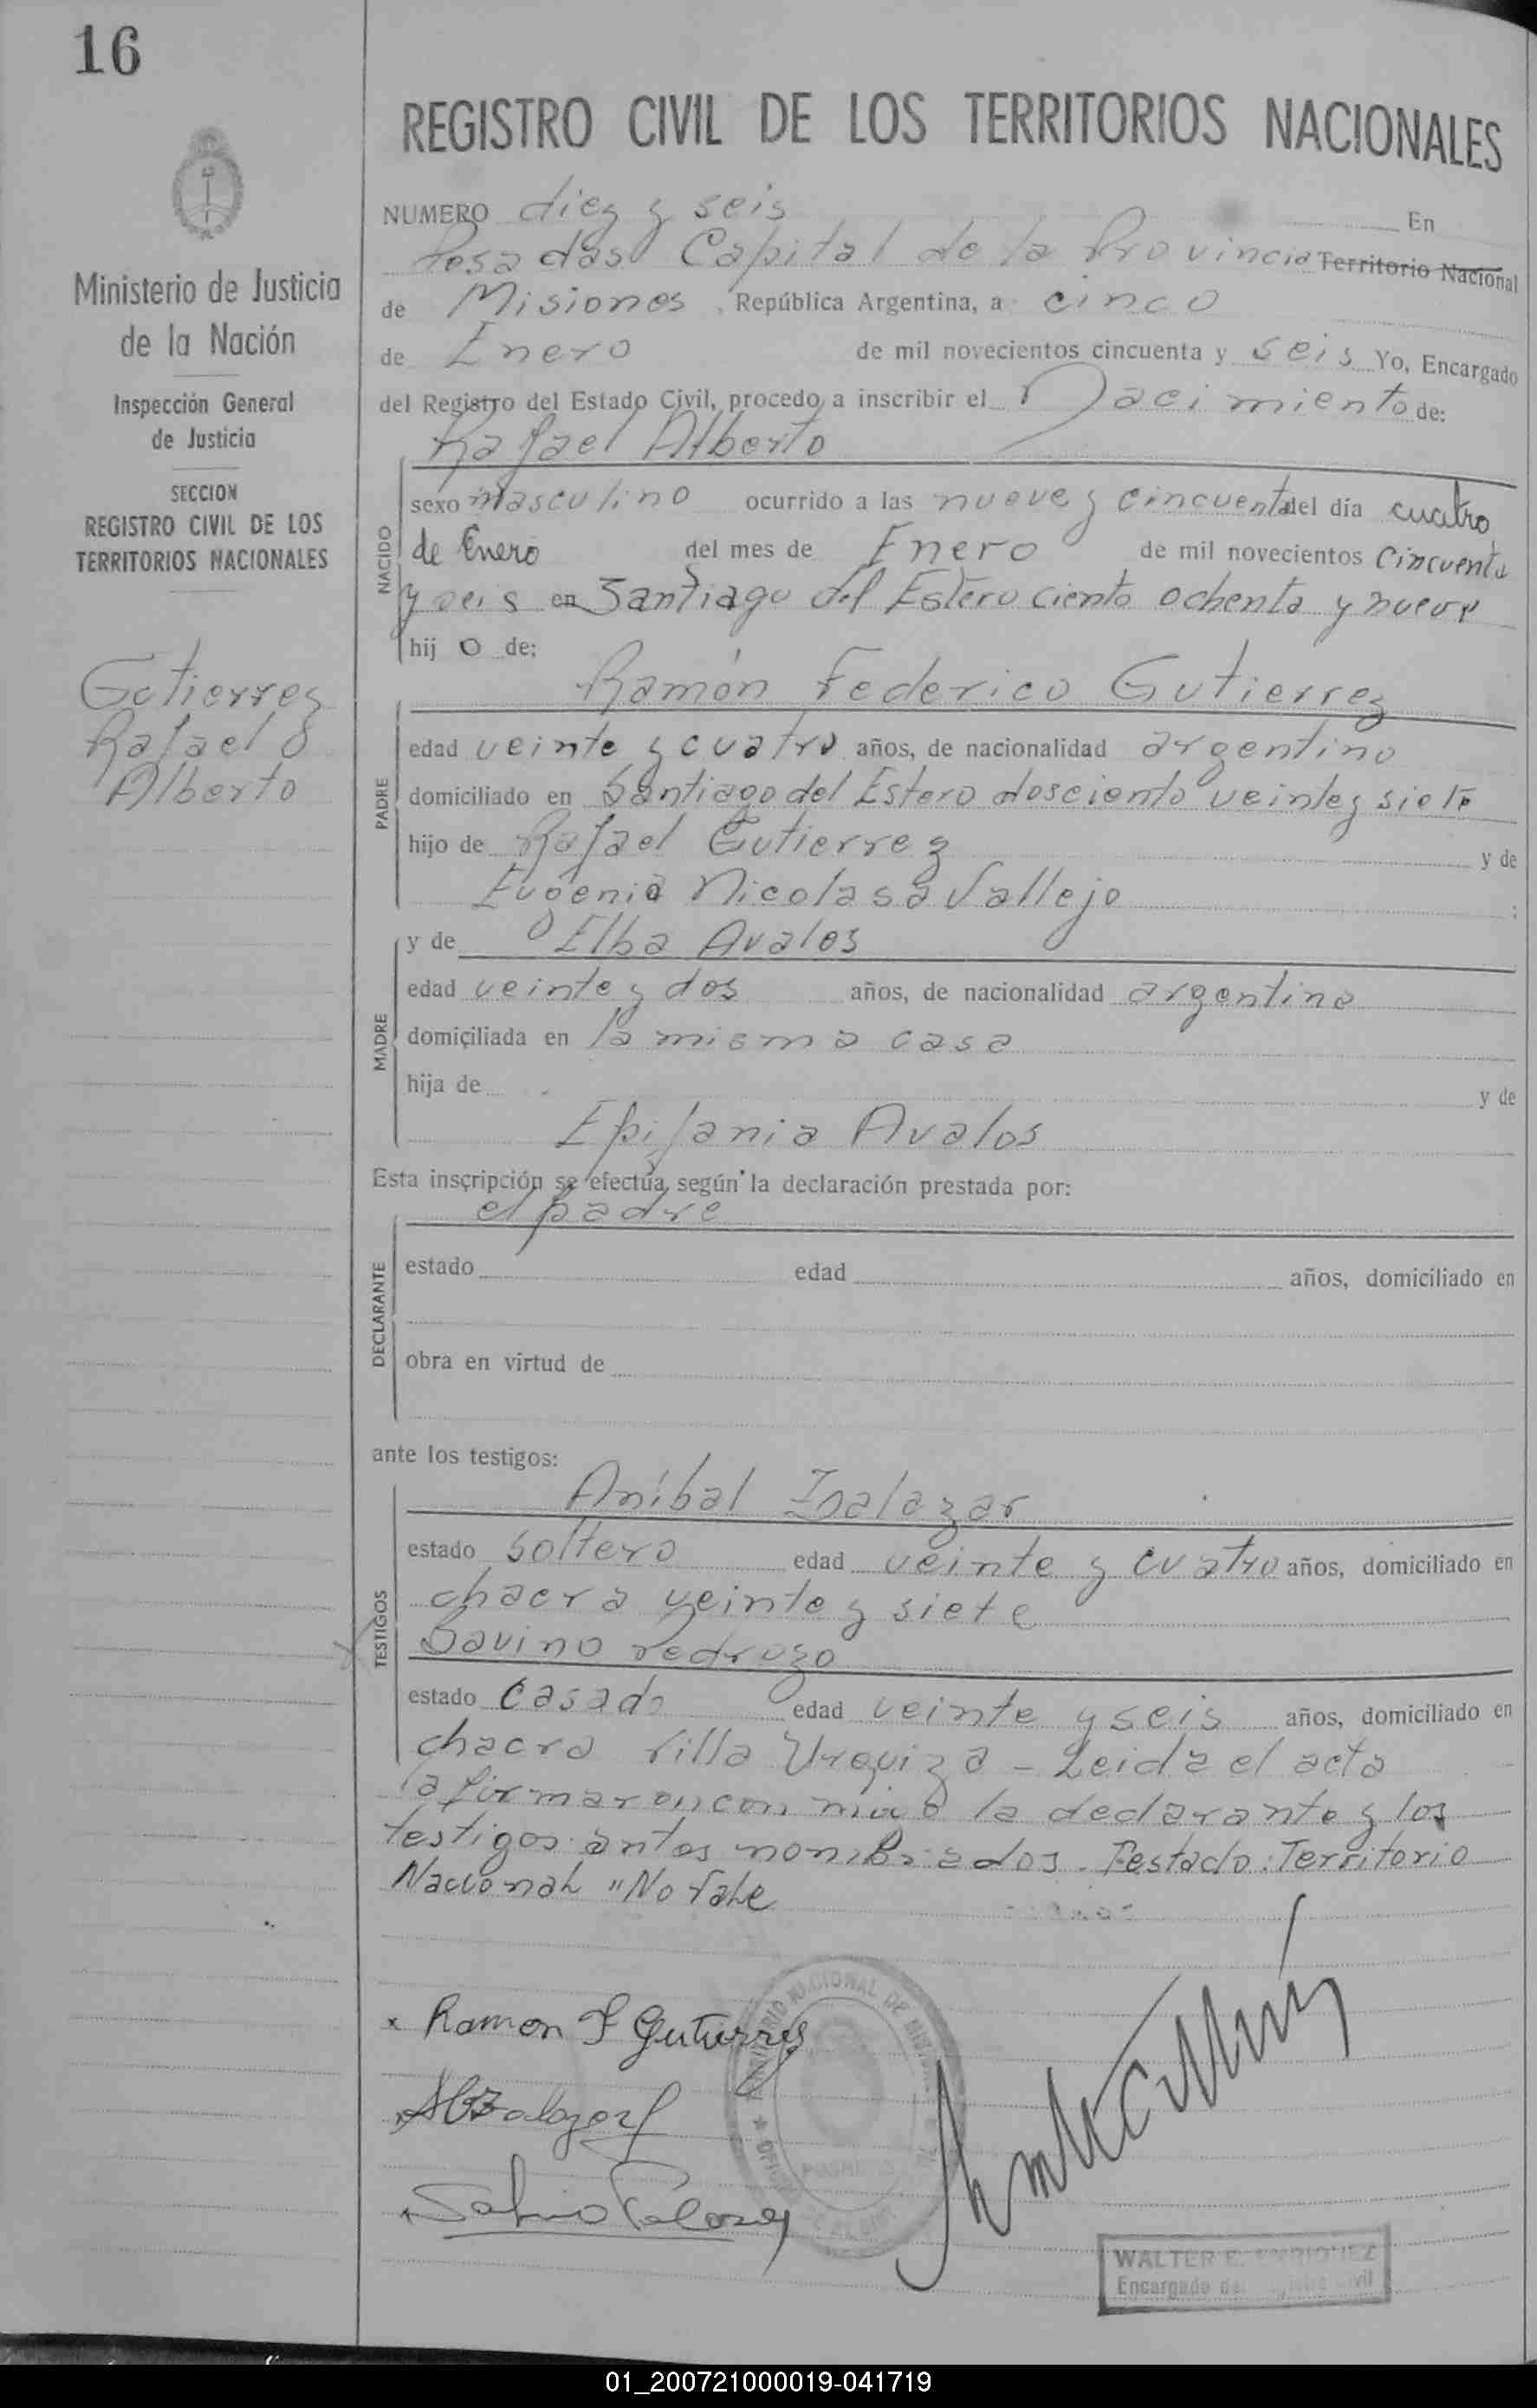 16
Ministerio de Justicia
de la Nación
Inspección General
de Justicia
SECCION
REGISTRO CIVIL DE LOS
TERRITORIOS NACIONALES
Gutierrez
Rafael
Alberto
REGISTRO CIVIL DE LOS TERRITORIOS NACIONALES
NUMERO diez y seis En
Posadas Capital de la Provincia Territorio Nacional
de Misiones, República Argentina, a cinco
de Enero de mil novecientos cincuenta y seis Yo, Encargado
del Registro del Estado Civil, procedo a inscribir el Nacimiento de:
Rafael Alberto
NACIDO
sexo masculino ocurrido a las nueve y cincuenta del día cuatro
de Enero del mes de Enero de mil novecientos cincuenta
y seis en Santiago del Estero ciento ochenta y nueve
hij o de:
Ramón Federico Gutierrez
PADRE
edad veinte y cuatro años, de nacionalidad argentino
domiciliado en Santiago del Estero dosciento veinte y siete
hijo de Rafael Gutierrez y de
Eugenia Nicolasa Vallejo ;
y de Elba Avalos
MADRE
edad veinte y dos años, de nacionalidad argentina
domiciliada en la misma casa
hija de y de
Epifania Avalos
Esta inscripción se efectúa, según la declaración prestada por:
el padre
DECLARANTE
estado edad años, domiciliado en
obra en virtud de
ante los testigos:
Aníbal
TESTIGOS
estado soltero edad veinte y cuatro años, domiciliado en
chacra veinte y siete
Savino Pedrozo
estado casado edad veinte y seis años, domiciliado en
chacra Villa Urquiza - Leida el acta
la firmaron con migo la declarante y los
testigos antes nombrados. Testado: Territorio
Nacional "No Vale
x Ramon F Gutierrez
WALTER E. ENRIQUEZ
Encargado del Registro Civil
01_200721000019-041719